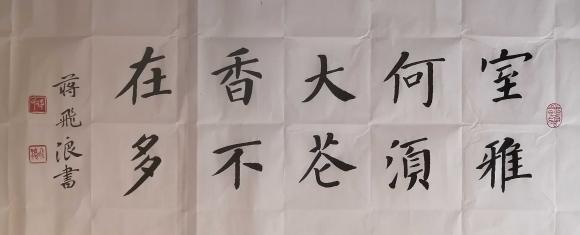 室雅
何須
大花
香不
在多
蒋飛浪書